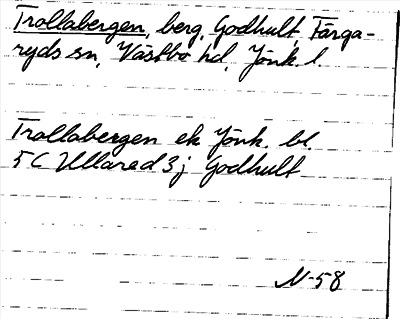 Trollabergen, berg, Godhult, Färga-
ryds sn, Västbo hd, Jönk. l.
Trollabergen ek Jönk. bl.
5 C Ullared 3 j Godhult
N-58